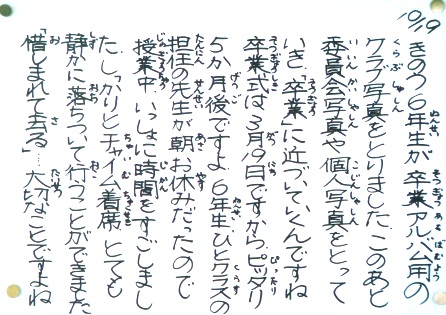 10/19
きのう6年生が卒業アルバム用の
クラブ写真をとりました。このあと
委員会写真や個人写真をとって
いき「卒業」に近づいていくんですね
卒業式は3月19日ですから、ピッタリ
5か月後ですよ。6年生ひとクラスの
担任の先生が朝お休みだったので
授業中いっしょに時間をすごしまし
た。しっかりとチャイム着席とても
静かに落ちついて行うことができました
「惜しまれて去る」…大切なことですよね